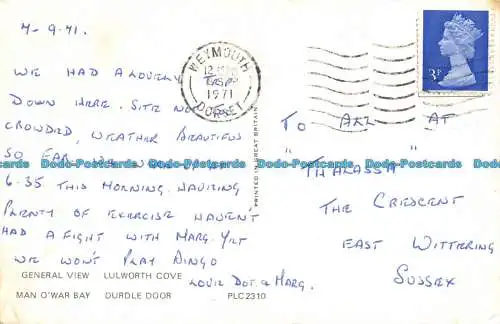 7-9-71.
WE HAD A LOVELY
DOWN HERE. SITE NOT
CROWDED, WEATHER BEAUTIFUL
SO FAR.
6.35 THIS MORNING. HAVING
PLENTY OF EXERCISE HAVEN'T
HAD A FIGHT WITH MARG. YET
WE WON'T PLAY BINGO
LOVE DOT & MARG.
GENERAL VIEW LULWORTH COVE
MAN O'WAR BAY DURDLE DOOR PLC2310
PRINTED IN GREAT BRITAIN
WEYMOUTH
1971
DORSET
3P
TO ALL AT
" "
THALASSA
THE CRESCENT
EAST WITTERING
SUSSEX
Dodo-Postcards Dodo-Postcards Dodo-Postcards Dodo-Postcards Dodo-Postcards